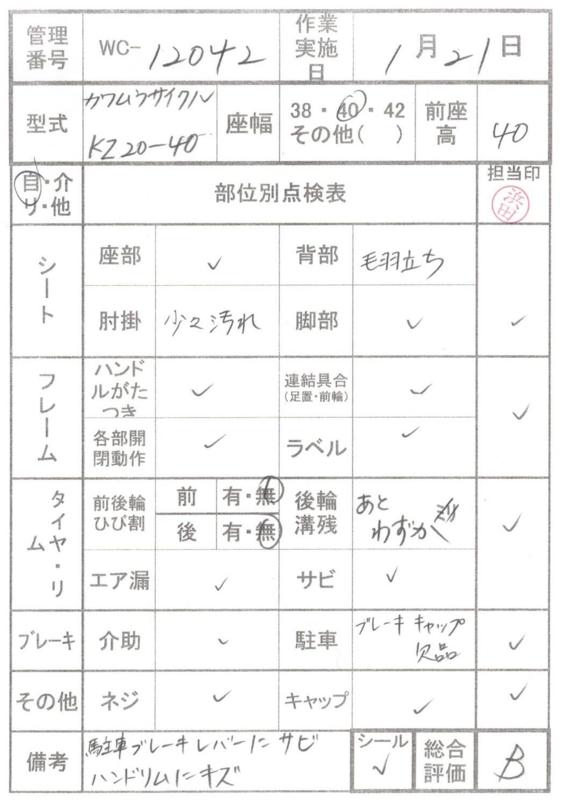 管理番号 WC-12042 作業実施日 1月21日
型式 カワムラサイクル KZ20-40 座幅 38・40・42 その他( ) 前座高 40
自・介 リ・他 部位別点検表 担当印 浜田
シート 座部 ✓ 背部 毛羽立ち
肘掛 少々汚れ 脚部 ✓ ✓
フレーム ハンドルがたつき ✓ 連結具合(足置・前輪) ✓ ✓
各部開閉動作 ✓ ラベル ✓
タイヤ・リム 前後輪ひび割 前 有・無 後 有・無 後輪溝残 あとわずか ✓
エア漏 ✓ サビ ✓
ブレーキ 介助 ✓ 駐車 ブレーキキャップ欠品 ✓
その他 ネジ ✓ キャップ ✓ ✓
備考 駐車ブレーキレバーにサビ シール ✓ 総合評価 B
ハンドリムにキズ